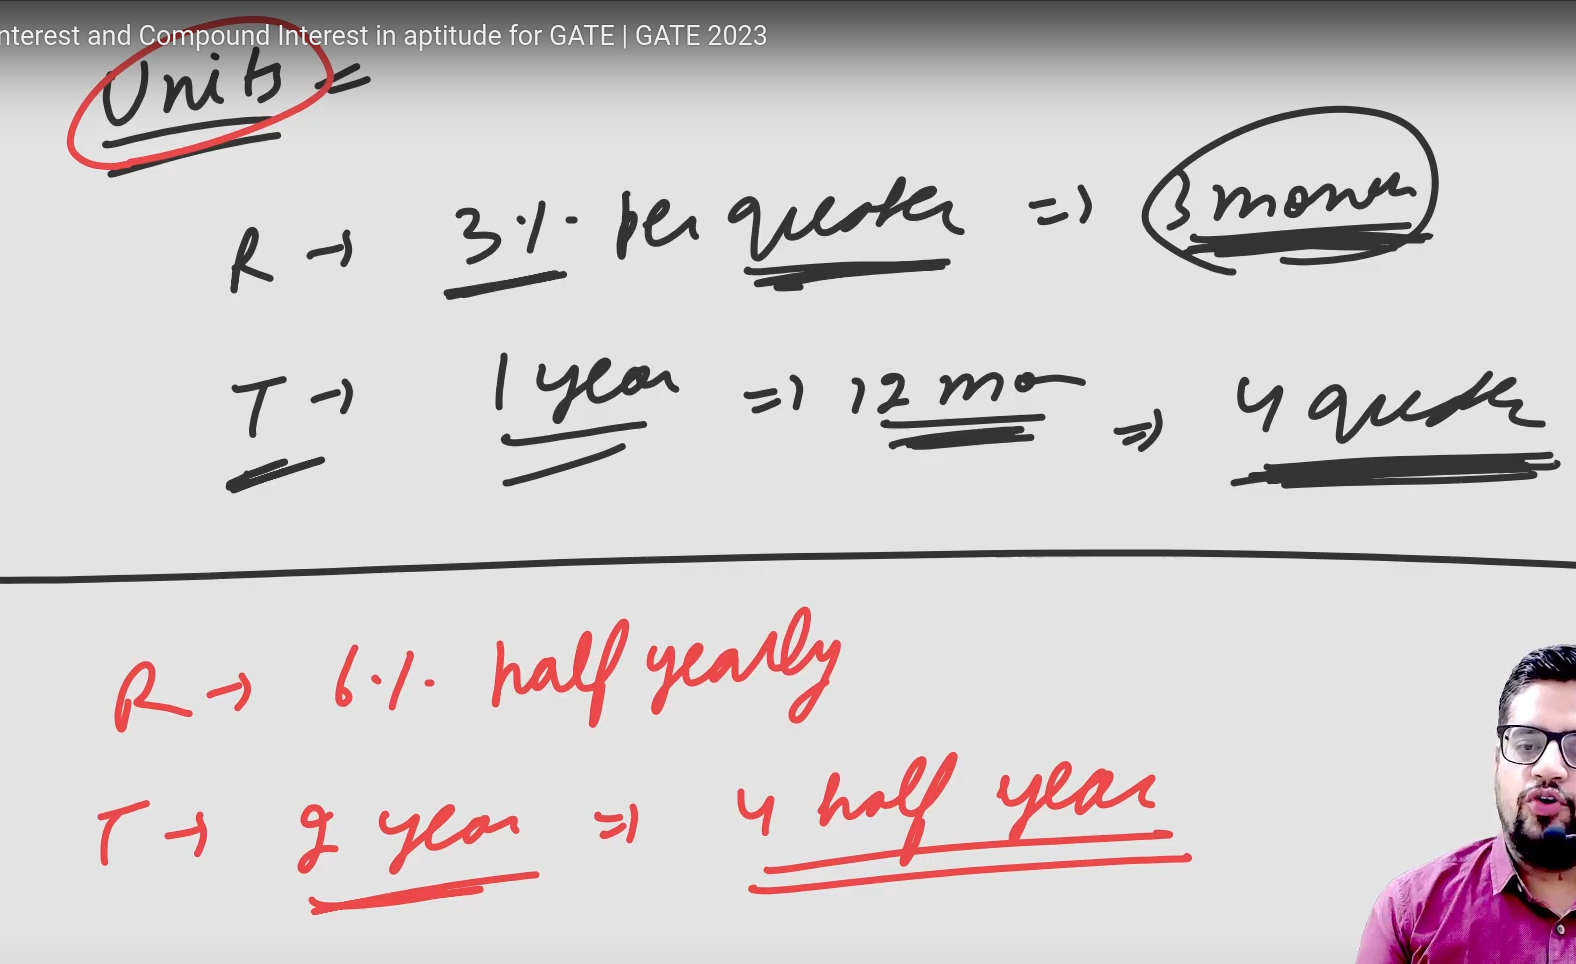 nterest and Compound Interest in aptitude for GATE | GATE 2023
Units =
R → 3% per quarter => 3 month
T → 1 year => 12 mo => 4 quarter
R → 6% half yearly
T → 2 year => 4 half year